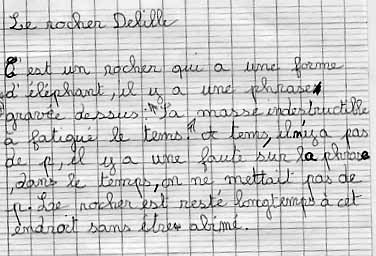 Le rocher Delille
C'est un rocher qui a une forme
d'éléphant, il y a une phrase
gravée dessus : "Sa masse indestructible
a fatigué le tems". A tems, il n'y a pas
de p, il y a une faute sur la phrase
, dans le temps, on ne mettait pas de
p. Le rocher est resté longtemps à cet
endroit sans être abimé.